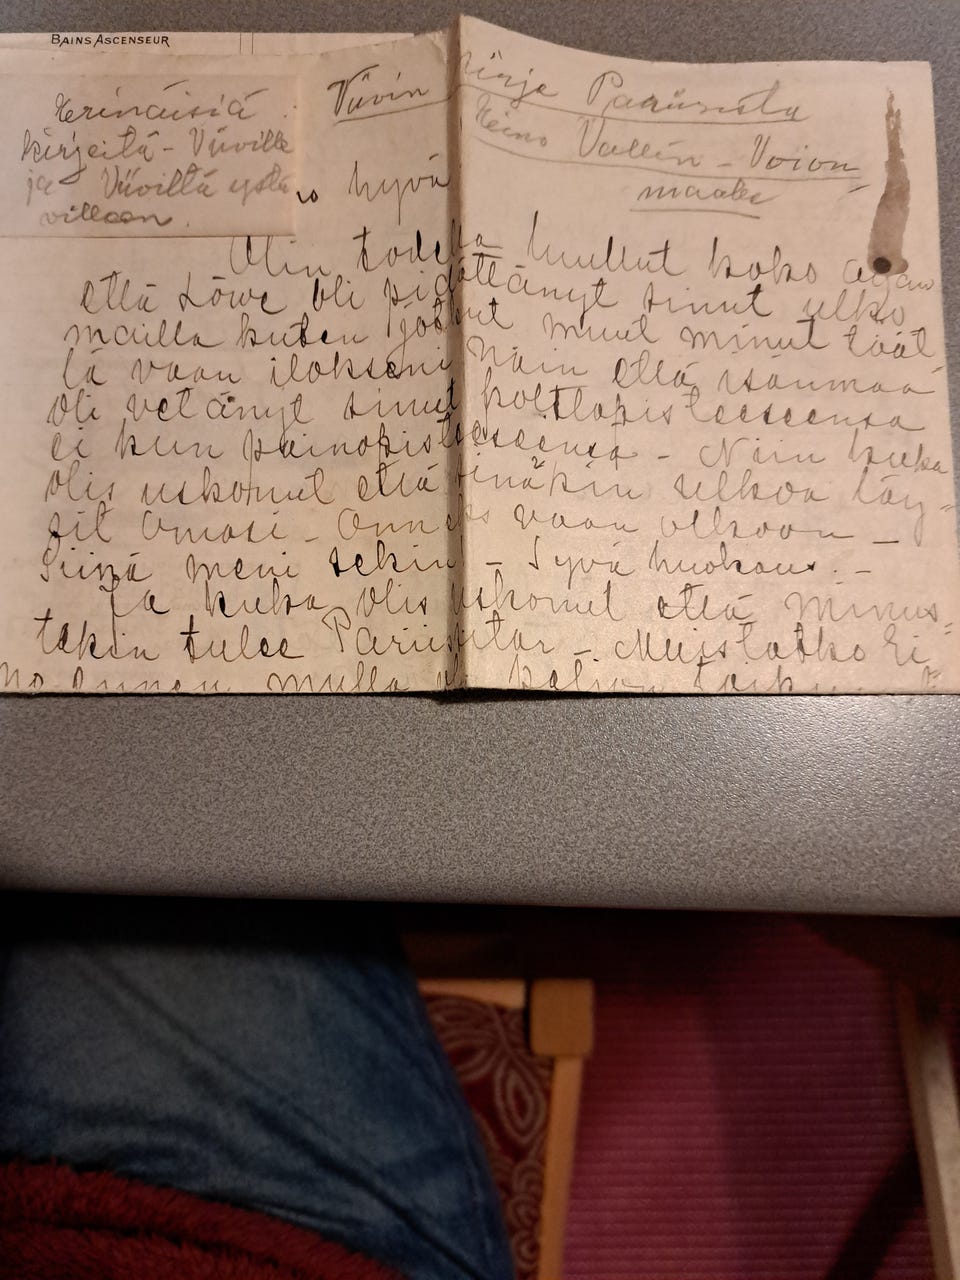 BAINS ASCENSEUR
Herinäisiä
kirjeitä - Viiville
ja Viiviltä ystä
villeen.
Viivin kirje Pariisista
Heino Vallin - Voion
maalle
hyvä
Olin todella luullut koko ajan
että Löwe oli pidättänyt sinut ulko
mailla kuten jotkut muut minut tääl
lä vaan ilokseni näin että isänmaa
oli vetänyt sinut polttopisteeseensä
ei kun painopisteeseensä - Niin kuka
olis uskonut että sinäkin selkoa löy-
sit omasi - Onneks vaan olkoon -
Siinä meni sekin - Syvä huokaus. -
Ja kuka olis uskonut että minus-
takin tulee Pariisitar - Muistatko Ei
no ennen mulla oli paljon